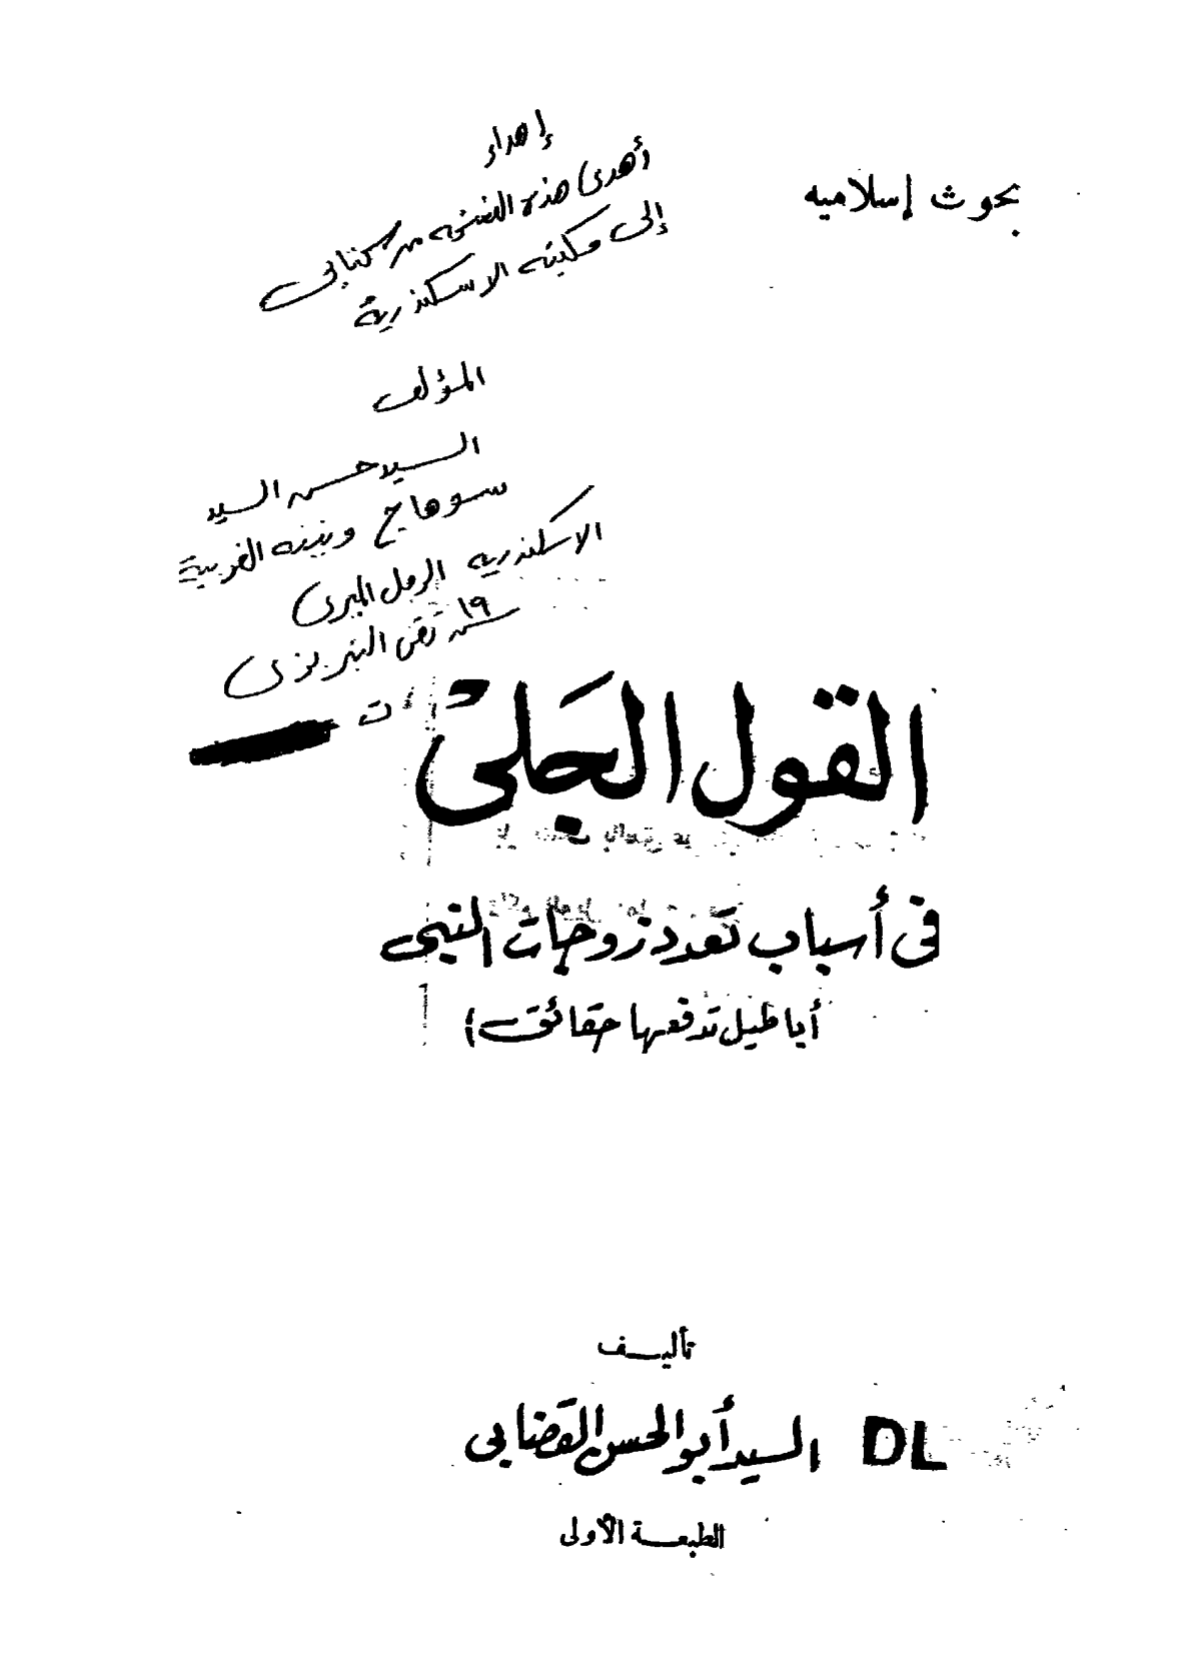 بحوث إسلاميه
إهداء
أهدى هذه النسخه من كتابى
إلى مكتبه الاسكندرية
المؤلف
السيد حسن السيد
سوهاج الغربية
الاسكندريه الرمل
١٩ ش تقى
ت
القول الجَلىّ
فى أسباب تعدد زوجات النبى
أباطيل تدفعها حقائق
تأليف
السيد أبو الحسن القضابى DL
الطبعة الأولى